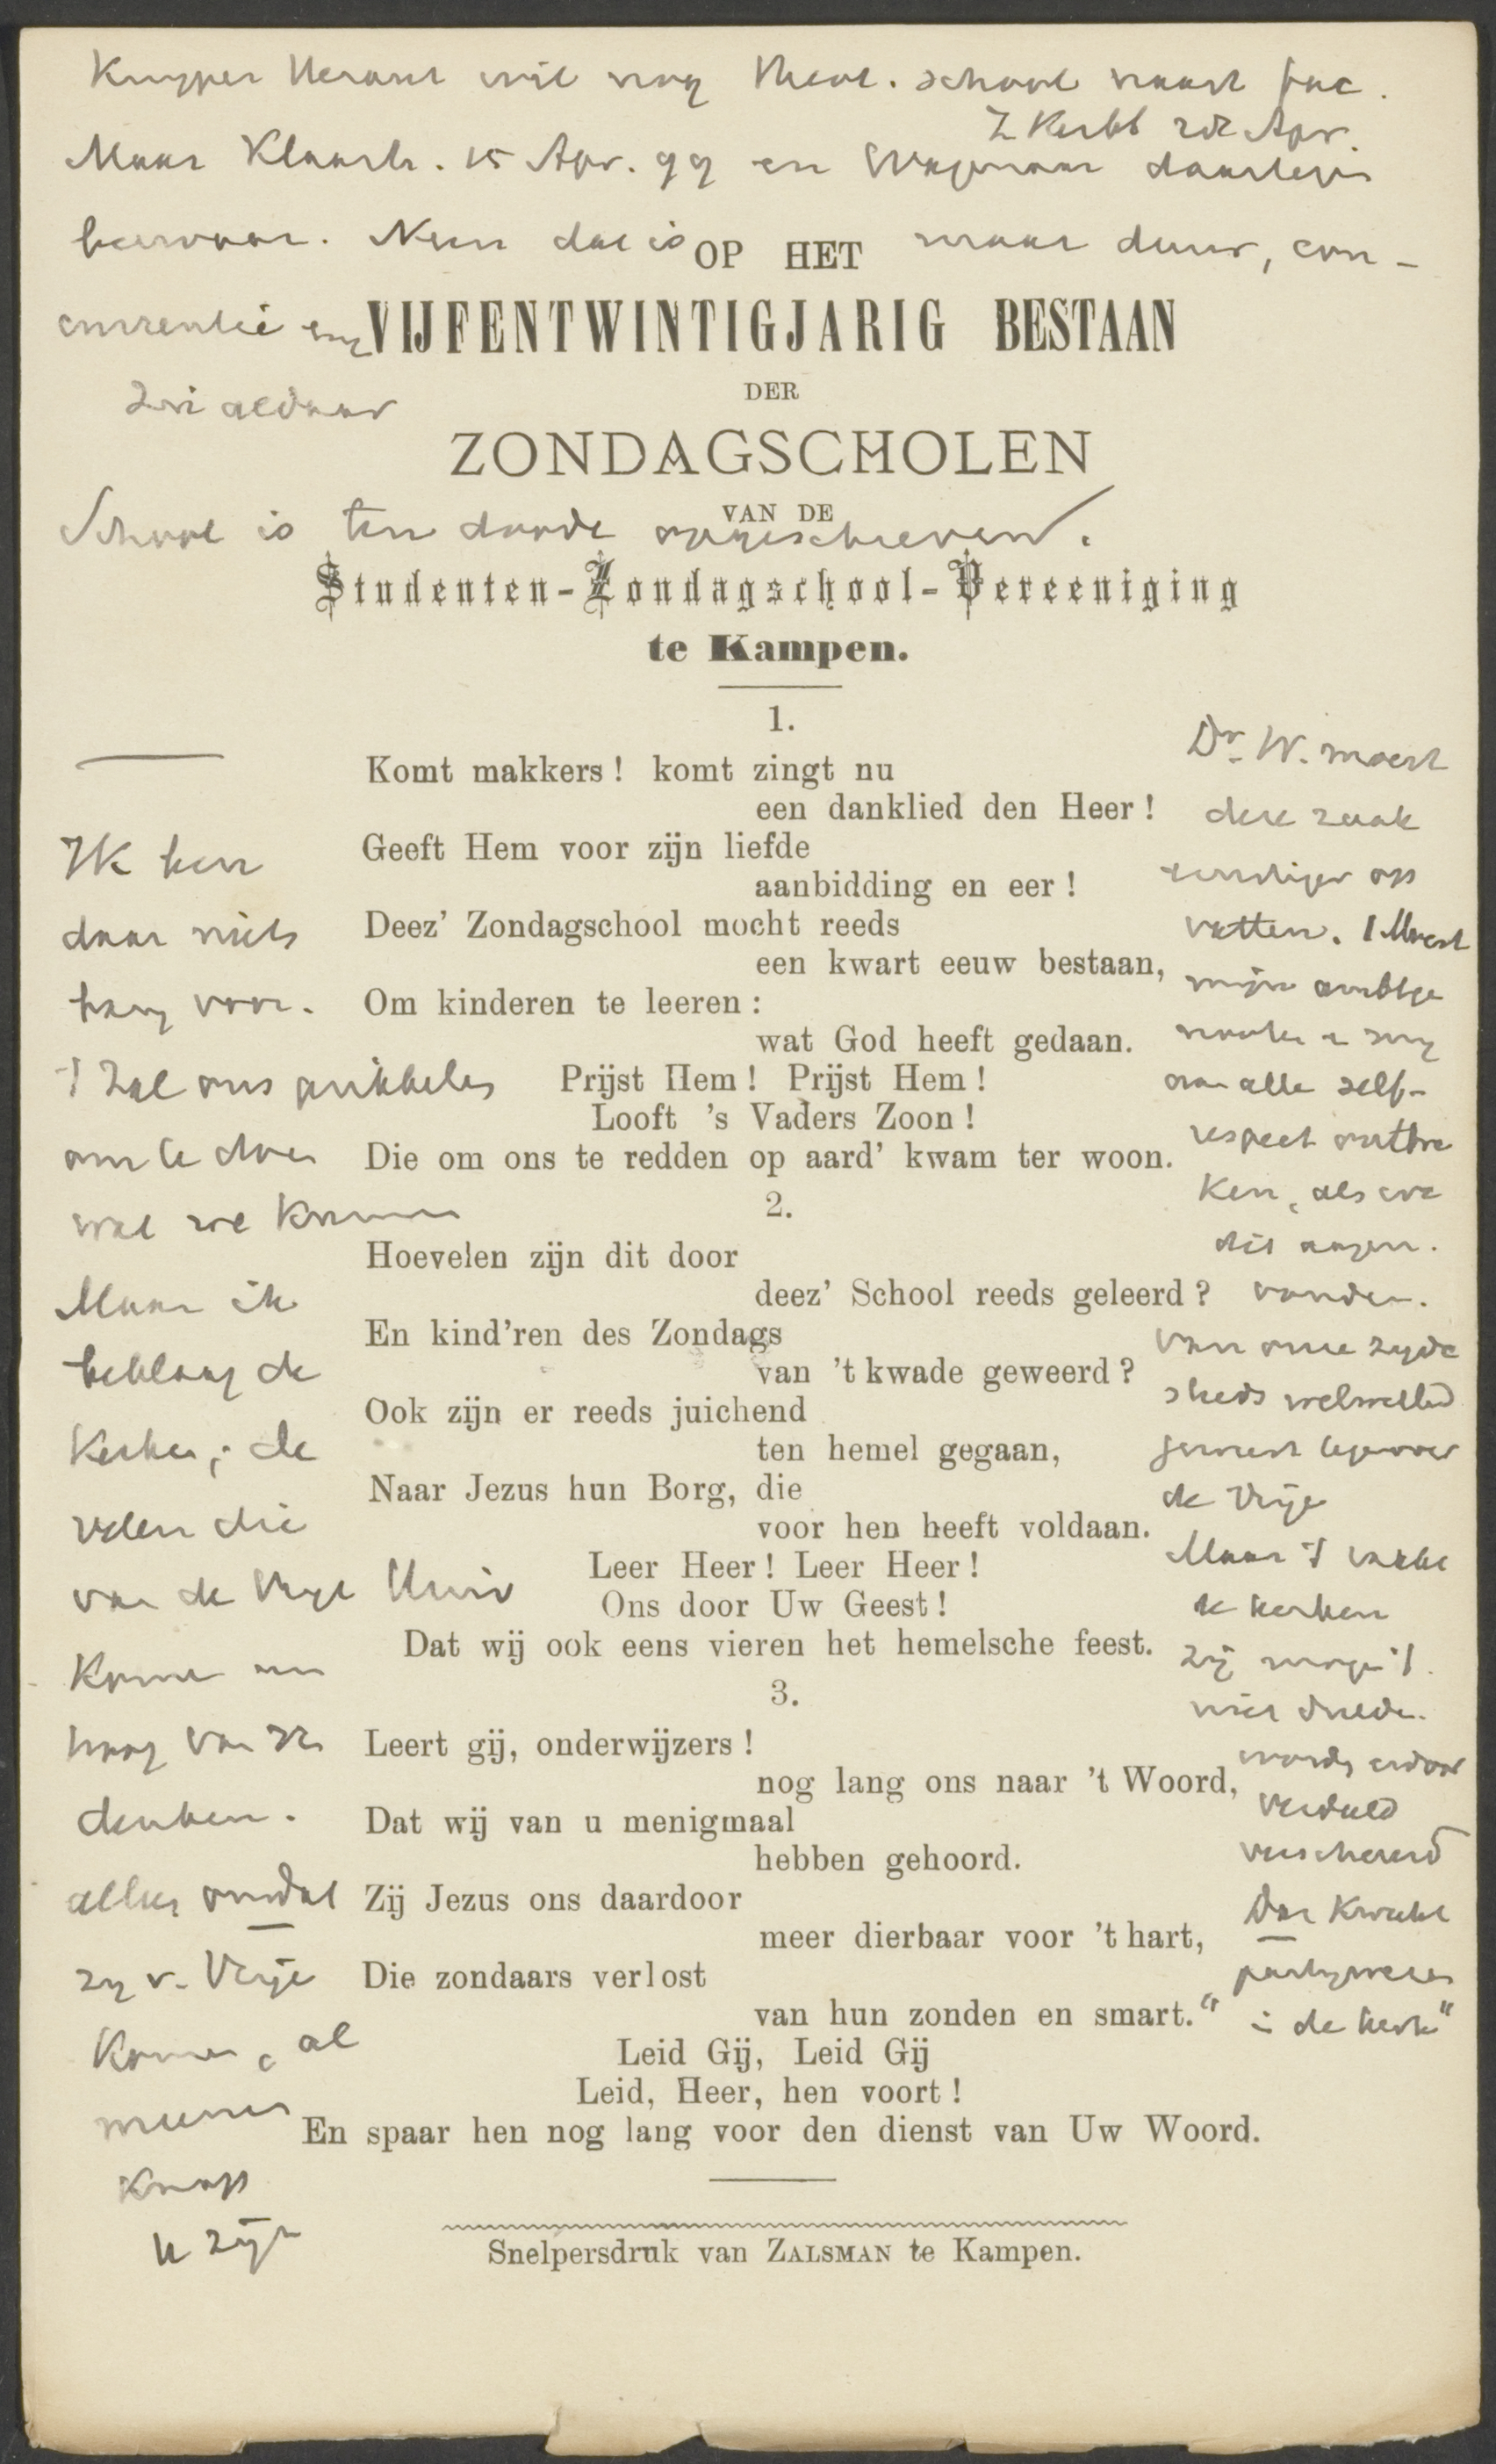 Kuyper Heraut wil nog Theol. school naast fac.
Z Kerkb 22 Apr.
Maar Klaarh. 15 Apr. 99 en Wagenaar daartegen
hiervoor. Neen dat is maar duur, con-
currentie
OP HET
VIJFENTWINTIGJARIG BESTAAN
DER
ZONDAGSCHOLEN
VAN DE
School is ten doode opgeschreven.
Studenten-Zondagschool-Vereeniging
te Kampen.
1.
Komt makkers! komt zingt nu
een danklied den Heer!
Geeft Hem voor zijn liefde
aanbidding en eer!
Deez' Zondagschool mocht reeds
een kwart eeuw bestaan,
Om kinderen te leeren:
wat God heeft gedaan.
Prijst Hem! Prijst Hem!
Looft 's Vaders Zoon!
Die om ons te redden op aard' kwam ter woon.
2.
Hoevelen zijn dit door
deez' School reeds geleerd?
En kind'ren des Zondags
van 't kwade geweerd?
Ook zijn er reeds juichend
ten hemel gegaan,
Naar Jezus hun Borg, die
voor hen heeft voldaan.
Leer Heer! Leer Heer!
Ons door Uw Geest!
Dat wij ook eens vieren het hemelsche feest.
3.
Leert gij, onderwijzers!
nog lang ons naar 't Woord,
Dat wij van u menigmaal
hebben gehoord.
Zij Jezus ons daardoor
meer dierbaar voor 't hart,
Die zondaars verlost
van hun zonden en smart."
Leid Gij, Leid Gij
Leid, Heer, hen voort!
En spaar hen nog lang voor den dienst van Uw Woord.
Snelpersdruk van ZALSMAN te Kampen.
Ik ben
daar niets
bang voor.
't Zal ons prikkelen
om te doen
wat we kunnen
Maar ik
beklaag de
Kerken; de
velen die
van de Vrije Univ
komen
hoog van zich
denken.
alleen omdat
zy v. Vrije
komen, al
meenen
knap
te zijn
Dr. W. moest
deze zaak
ernstiger op
vatten. 't Moest
mijn ambtge
noot
van alle zelf-
respect ontbre
ken, als we
dit
van onze zyde
steeds welwillend
geweest tegenover
de Vrije
Maar 't raakt
de kerken
Zij mogen 't
niet dulden.
worden erdoor
verdeeld
verscheurd
Dat kweekt
partijwezen
in de kerk"